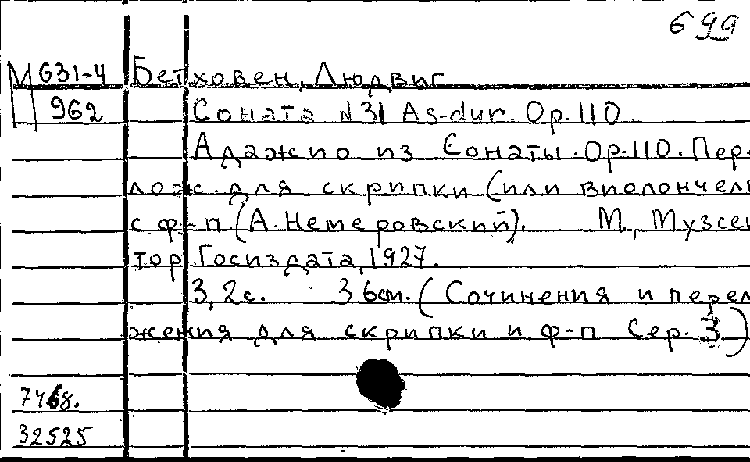 699
М 631-4 Бетховен, Людвиг
962 Соната №31 As-dur. Op.110
Адажио из Сонаты. Op.110. Пер-
лож. для скрипки (или виолончел
с ф-п (А. Немеровский). М., Музсек
тор Госиздата, 1927.
3, 2с. 36см. (Сочинения и перел
жения для скрипки и ф-п Сер. 3)
7468.
32525